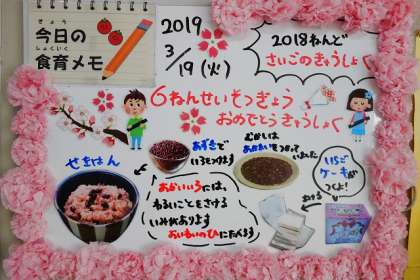 きょう
今日の
しょくいく
食育メモ
2019
3/19(火)
2018ねんど
さいごのきゅうしょく
6ねんせいそつぎょう
おめでとうきゅうしょく
せきはん
あずきで
いろをつけます
むかしは
あかいろには、
わるいことをさける
いみがあります
おいわいのひにたべます
いちご
ケーキが
つくよ!